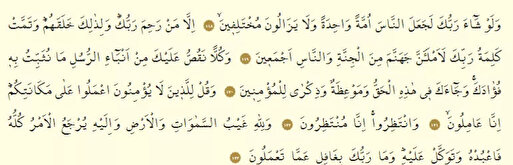 وَلَوْ شَٓاءَ رَبُّكَ لَجَعَلَ النَّاسَ اُمَّةً وَاحِدَةً وَلَا يَزَالُونَ مُخْتَلِفٖينَۙ ﴿١١٨﴾ اِلَّا مَنْ رَحِمَ رَبُّكَۜ وَلِذٰلِكَ خَلَقَهُمْۜ وَتَمَّتْ
كَلِمَةُ رَبِّكَ لَاَمْلَـَٔنَّ جَهَنَّمَ مِنَ الْجِنَّةِ وَالنَّاسِ اَجْمَعٖينَ ﴿١١٩﴾ وَكُلًّا نَقُصُّ عَلَيْكَ مِنْ اَنْبَٓاءِ الرُّسُلِ مَا نُثَبِّتُ بِهٖ
فُؤٰادَكَۚ وَجَٓاءَكَ فٖي هٰذِهِ الْحَقُّ وَمَوْعِظَةٌ وَذِكْرٰى لِلْمُؤْمِنٖينَ ﴿١٢٠﴾ وَقُلْ لِلَّذٖينَ لَا يُؤْمِنُونَ اعْمَلُوا عَلٰى مَكَانَتِكُمْۜ
اِنَّا عَامِلُونَۙ ﴿١٢١﴾ وَانْتَظِرُواۚ اِنَّا مُنْتَظِرُونَ ﴿١٢٢﴾ وَلِلّٰهِ غَيْبُ السَّمٰوَاتِ وَالْاَرْضِ وَاِلَيْهِ يُرْجَعُ الْاَمْرُ كُلُّهُ
فَاعْبُدْهُ وَتَوَكَّلْ عَلَيْهِۜ وَمَا رَبُّكَ بِغَافِلٍ عَمَّا تَعْمَلُونَ ﴿١٢٣﴾